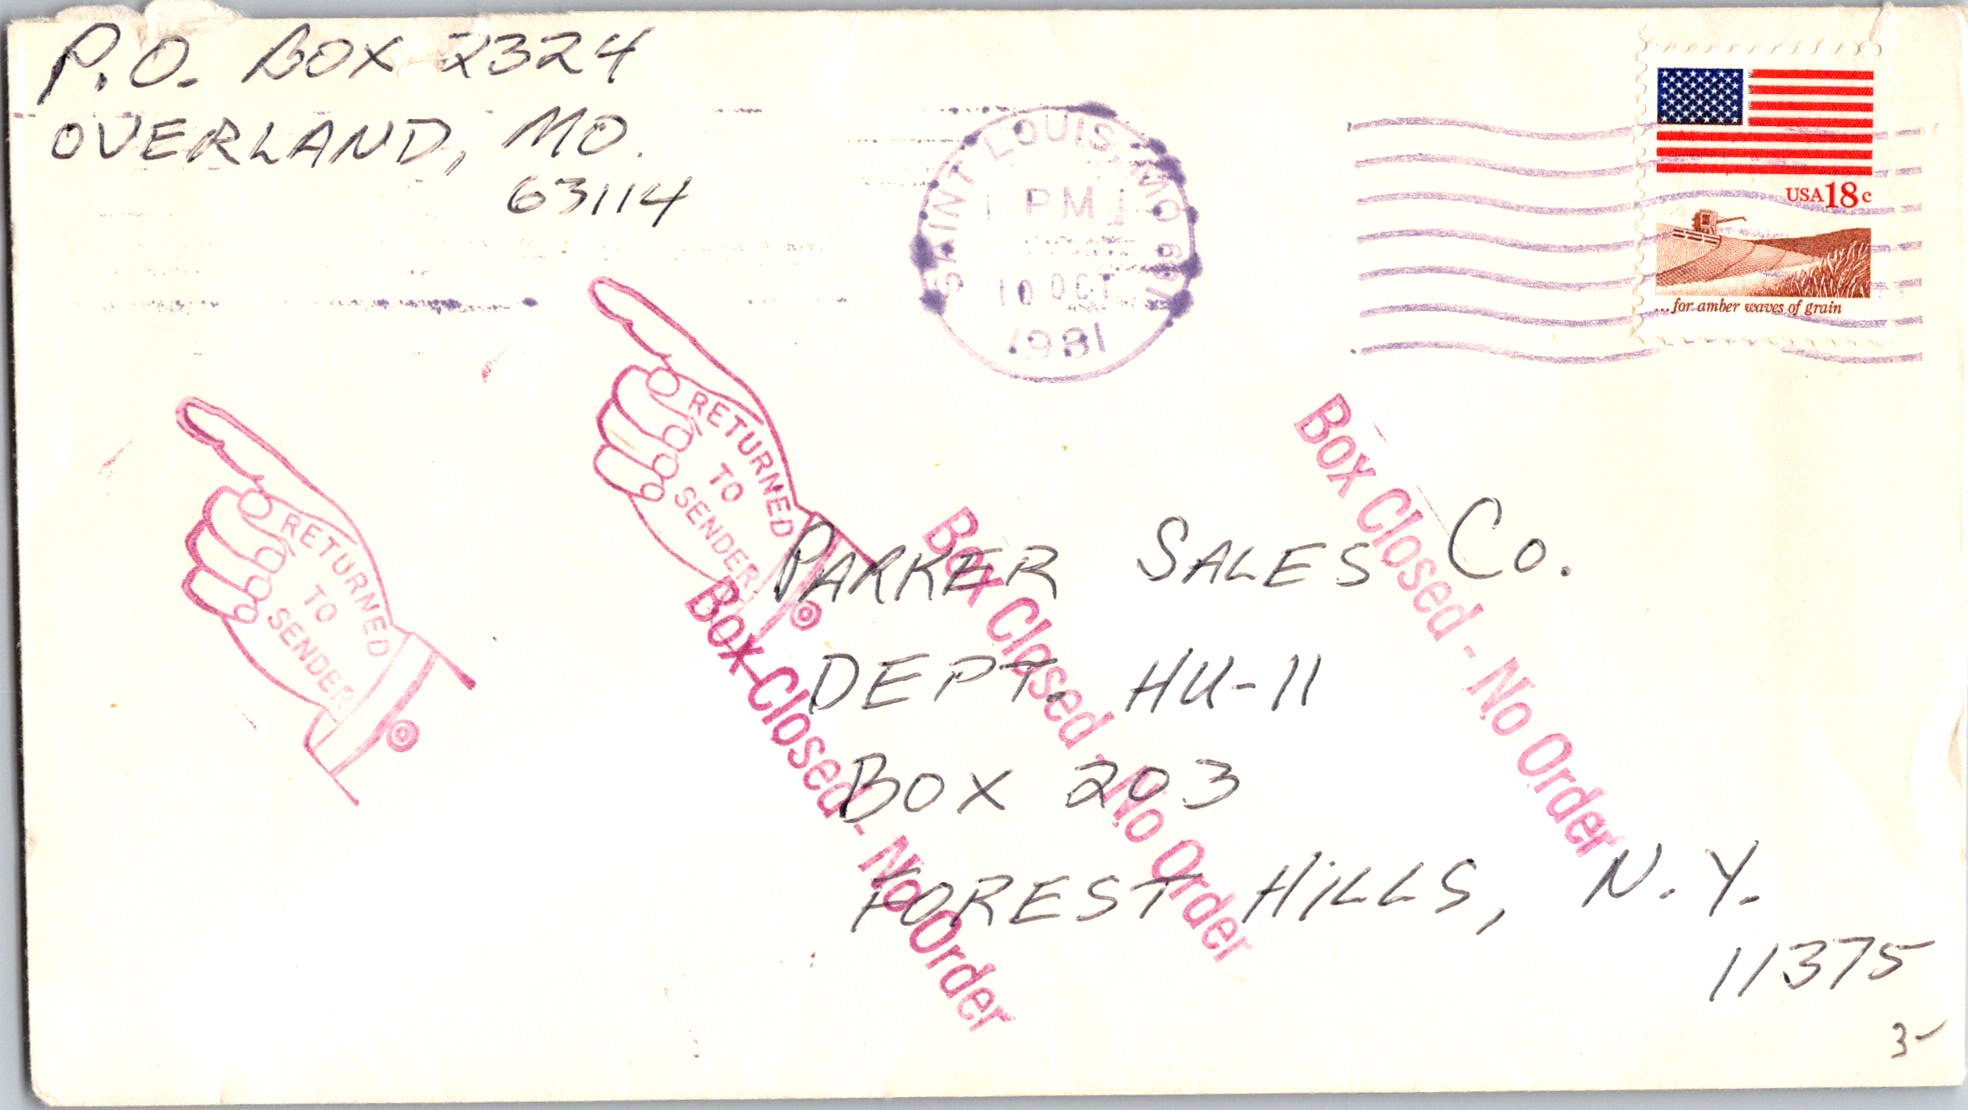 P.O. BOX 2324
OVERLAND, MO.
63114
SAINT LOUIS, MO
PM
10 OCT
1981
USA18c
...for amber waves of grain
RETURNED
TO
SENDER
RETURNED
TO
SENDER
Box Closed - No Order
Box Closed - No Order
Box Closed - No Order
PARKER SALES Co.
DEPT. HU-11
BOX 203
FOREST HILLS, N.Y.
11375
3-